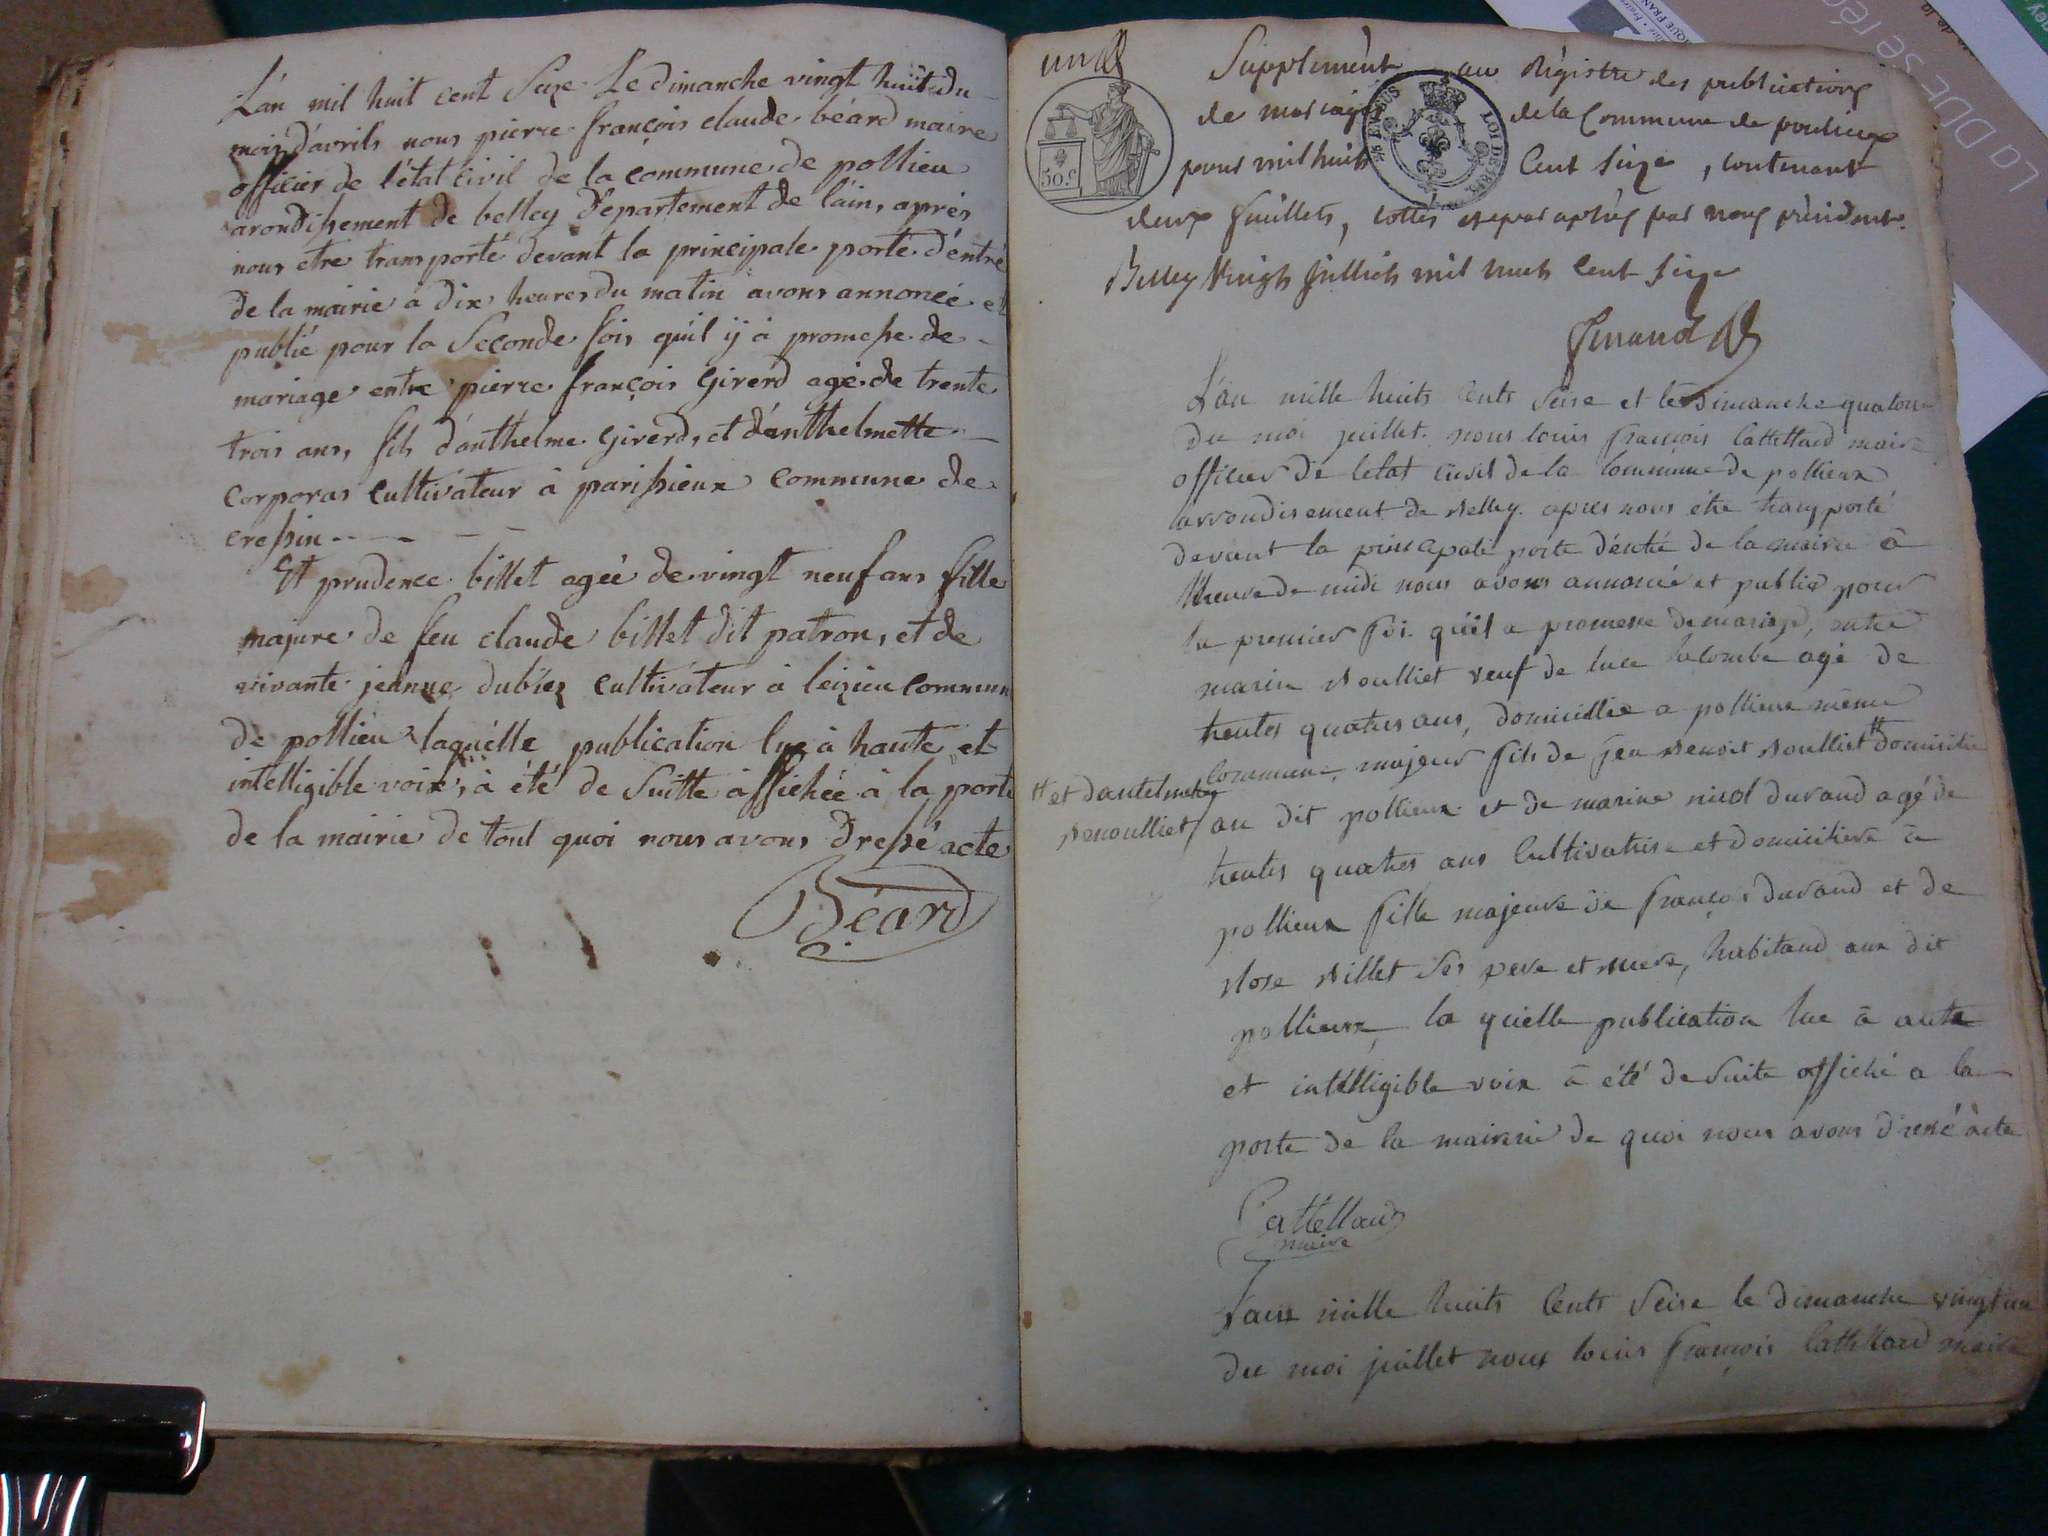 L'an mil huit cent Seize Le dimanche vingt huit du
mois d'avril, nous pierre françois claude béard maire
officier de l'état civil de la commune de pollieu
arondissement de belley Département de l'ain, aprés
nous etre transporté devant la principale porte d'entré
de la mairie à Dix heures du matin avons annoncée et
publié pour la Seconde fois quil ÿ à promesse de
mariage entre pierre françois Girerd agé de trente
trois ans, fils d'anthelme Girerd, et d'anthelmette
corporas cultivateur à parissieux commune de
cressin
Et prudence billet agée de vingt neuf ans fille
majure de feu claude billet dit patron, et de
vivante jeanne dubiez cultivateur à leizieu commun
de pollieu laquelle publication lue à haute et
intelligible voix, à été de Suitte affichée à la porte
de la mairie de tout quoi nous avons Dressé acte
Béard
un
Supplément au Régistre des publications
de mariage de la Commune de poulieux
pour mil huit Cent Size, contenant
deux feuillets, cottés et paraphés par nous président.
Belley Vingt Juillet mil huit Cent Size
50 c
TIMBRE
LOI DE 1816
L'an mille huits Cents Seise et le Dimanche quatorse
du moi juillet nous louis françois Cattelland maire
officier de letat civil de la Commune de pollieux
arrondisement de Belley apres nous étre transporté
devant la principale porte d'entré de la mairie à
lheure de midi nous avons annoncé et publié pour
la premier foi quil a promesse de mariage, entre
marin Roulliet veuf de luce lacombe agé de
trentes quatres ans, domicillié a pollieux même
Commune, majeur fils de feu Benoit Roulliet # domicilié
# et dantelmette
Renoulliet
au dit pollieux et de marine nicol durand agé de
trentes quatres ans Cultivatrise et domicilière à
pollieux fille majeure de françois durand et de
Rose Billet Ses pere et mere, habitand aux dit
pollieux, la quelle publication lue à aute
et intélligible voix à été de Suite affiché a la
porte de la mairerie de quoi nous avons dressé àcte
Cattelland
maire
Lans mille huits Cents Seise le dimanche vingt un
du moi juillet nous louis françois Cattelland maire